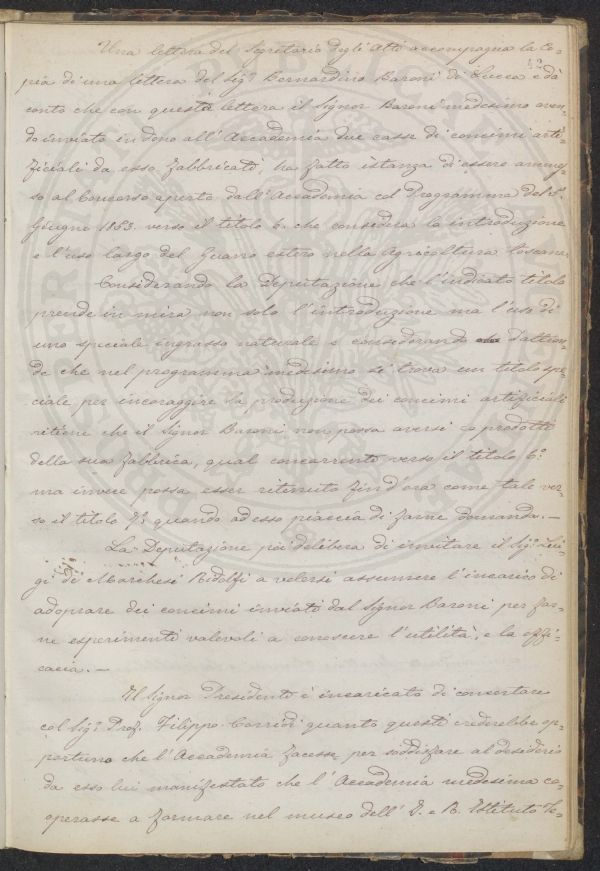 Una lettera del Segretario degli Atti accompagna la Co-
pia di una lettera del Sig.r Bernardino Baroni di Lucca e dà
conto che con questa lettera il Signor Baroni medesimo aven-
do inviato in dono all'Accademia due casse di concimi arti-
ficiali da esso fabbricati, ha fatto istanza di essere ammes-
so al Concorso aperto dall'Accademia col Programma del 5.
Giugno 1853. verso il titolo 6. che considera la introduzione
e l'uso largo del Guano estero nella Agricoltura toscana.
Considerando la Deputazione che l'indicato titolo
prende in mira non solo l'introduzione ma l'uso di
uno speciale ingrasso naturale e considerando d'altron-
de che nel programma medesimo si trova un titolo spe-
ciale per incoraggire la produzione dei concimi artificiali
ritiene che il Signor Baroni non possa aversi co prodotti
della sua fabbrica, qual concorrente verso il titolo 6.o
ma invece possa esser ritenuto fin d'ora come tale ver-
so il titolo 7.o quando ad esso piaccia di farne domanda. —
La Deputazione poi delibera di invitare il Sig.r Lui-
gi de Marchesi Ridolfi a volersi assumere l'incarico di
adoprare dei concimi inviati dal Signor Baroni per far-
ne esperimenti valevoli a conoscere l'utilità, e la effi-
cacia. —
Il Signor Presidente è incaricato di concertare
col Sig.r Prof. Filippo Corridi quanto questi crederebbe op-
portuno che l'Accademia facesse per soddisfare al desiderio
da esso lui manifestato che l'Accademia medesima co-
operasse a formare nel museo dell'I. e R. Istituto Te-